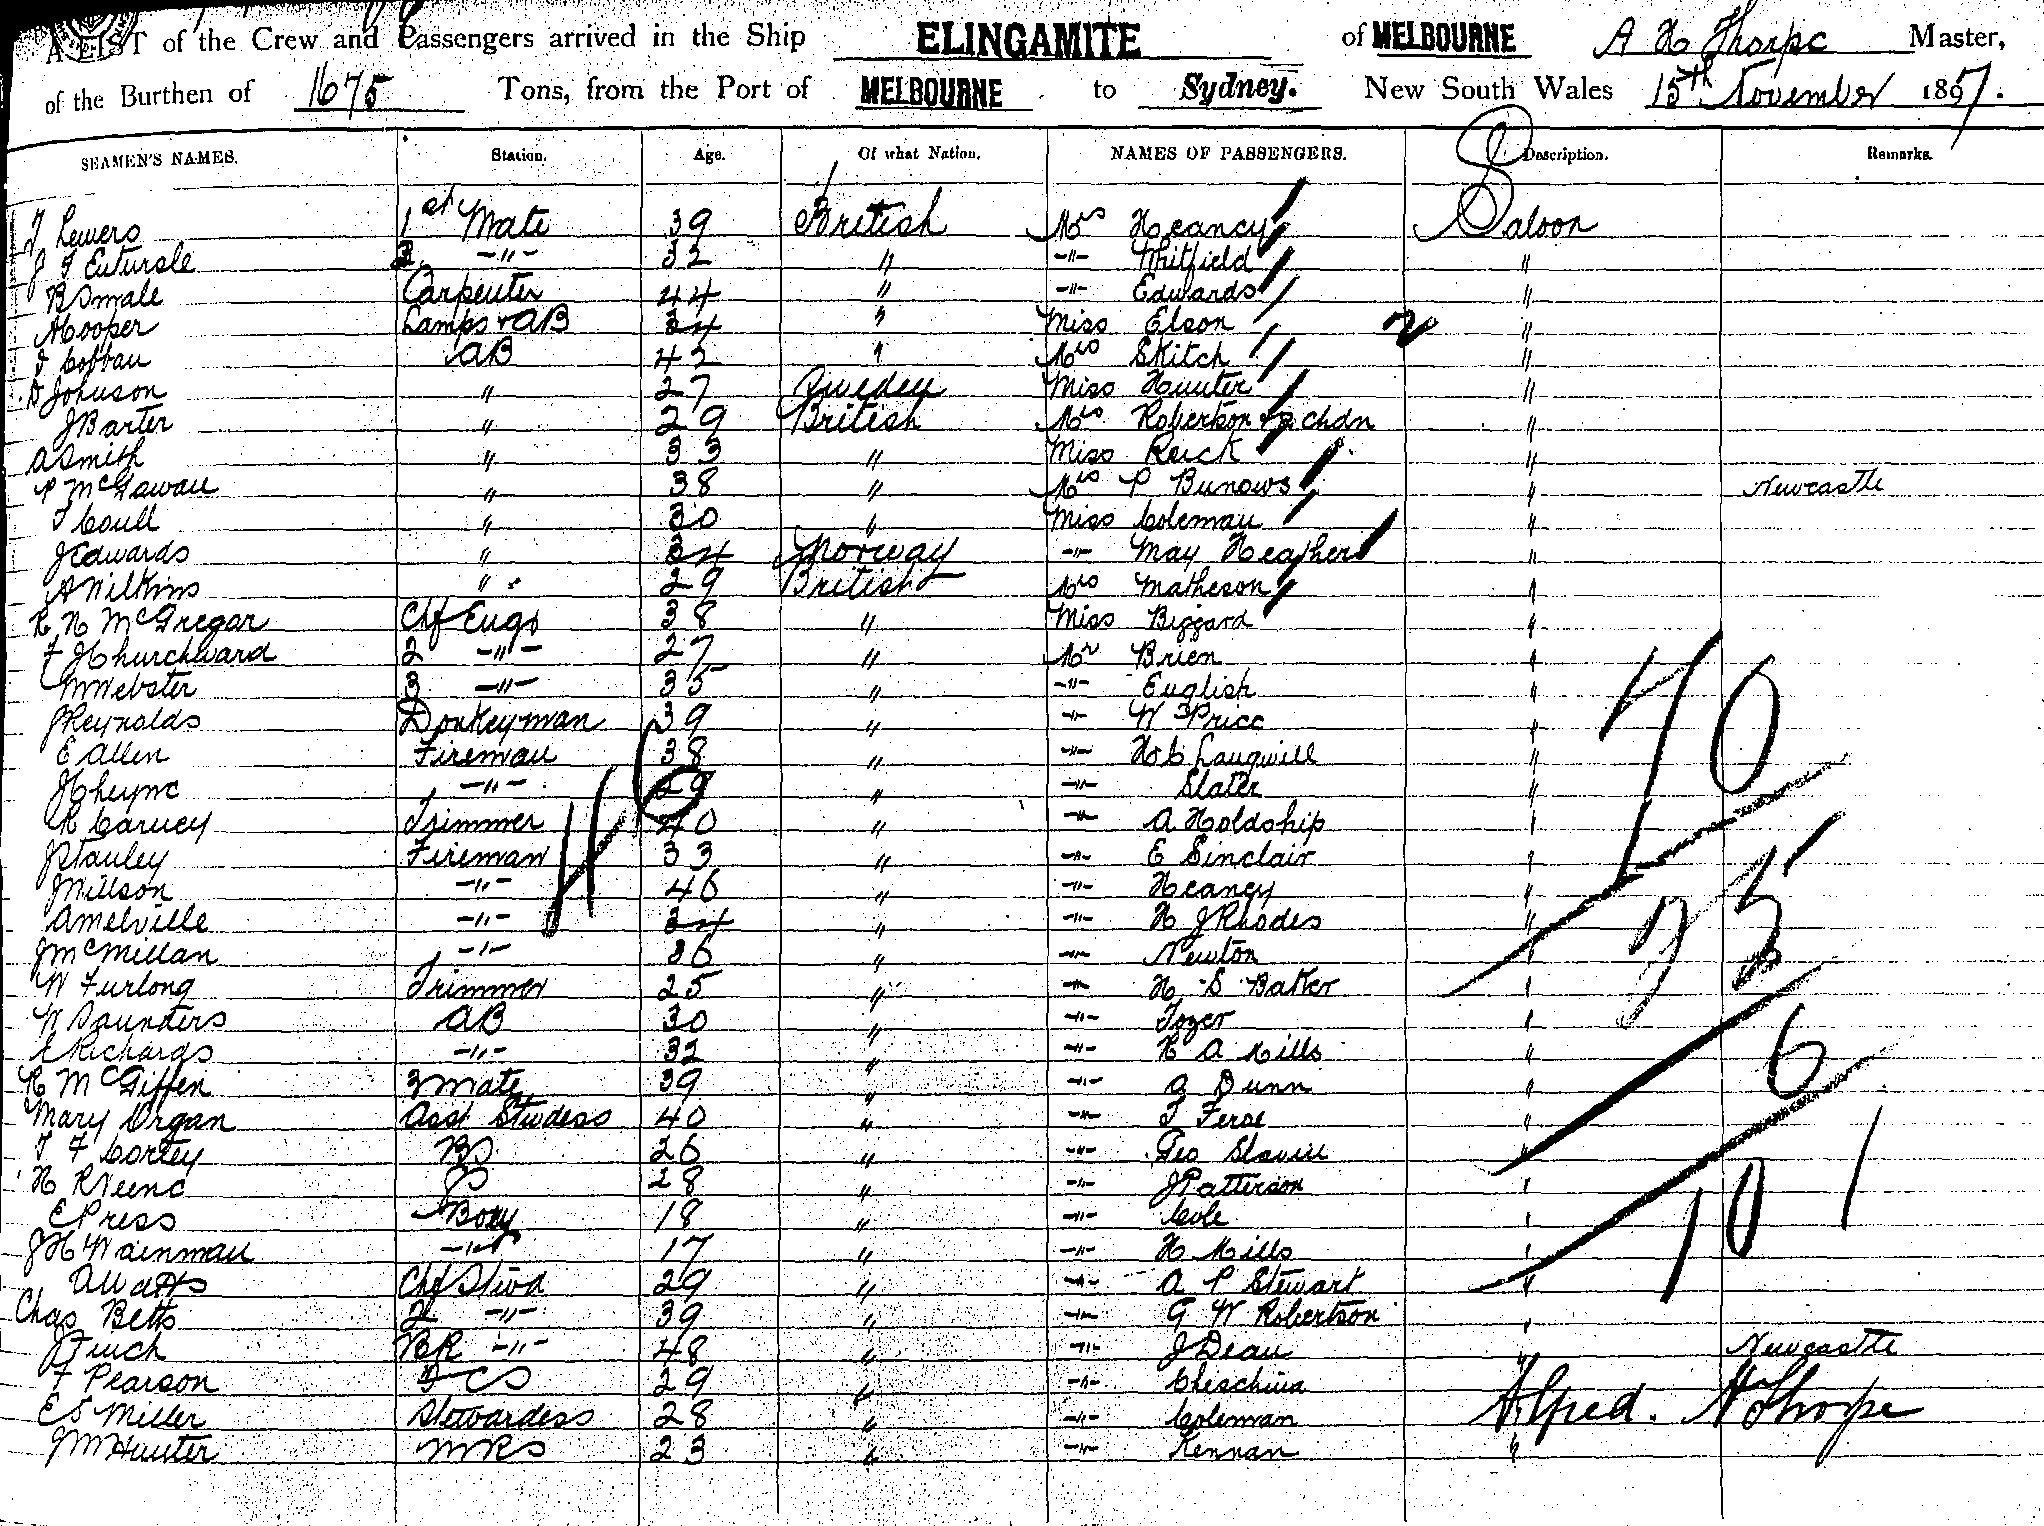 A LIST of the Crew and Passengers arrived in the Ship ELINGAMITE of MELBOURNE A H Thorpe Master,
of the Burthen of 1675 Tons, from the Port of MELBOURNE to Sydney. New South Wales 15th November 1897.
SEAMEN'S NAMES. Station. Age. Of what Nation. NAMES OF PASSENGERS. Description. Remarks.
J Lewers 1st Mate 39 British Mrs Heancy Saloon
2 -"- 32 " -"- Whitfield "
B Smale Carpenter 44 " -"- Edwards "
A Cooper Lamps & AB 24 " Miss Elson 2 "
AB 43 " Mrs Skitch "
D Johnson " 27 Sweden Miss Hunter "
J Barter " 29 British Mrs Robertson & 2 Chdn "
A Smith " 33 " Miss Reick "
P McGawan " 38 " Mrs P Bunows " Newcastle
T Coull " 30 " Miss Coleman "
J Edwards " 24 Norway -"- May Heather "
A Wilkins " 29 British Mrs Matheson "
R N McGregar Chf Engr 38 " Miss Biggard "
F J Churchward 2 -"- 27 " Mr Brien "
W Webster 3 -"- 35 " -"- English " 70
J Reynolds Donkeyman 39 " -"- W Price "
E Allen Fireman 38 " -"- H C Langwill "
J Cheyne -"- 29 " -"- Slater "
R Carney Trimmer 40 " -"- A Holdship "
J Stanley Fireman 33 " -"- E Sinclair "
J Willson -"- 46 " -"- Heancy "
A Melville -"- 24 " -"- H J Rhodes " 25
J McMillan -"- 36 " -"- Newton "
W Furlong Trimmer 25 " -"- H S Baker "
W Saunders AB 30 " -"- Tozer "
C Richards -"- 32 " -"- H A Mills " 6
R McGiffen 3 Mate 39 " -"- A Dunn "
Mary Organ Asst Stwdess 40 " -"- T Feroe "
T F Cortey BS 26 " -"- Geo Slavin "
28 " -"- J Patterson " 101
E Press Boy 18 " -"- Cole "
J H Wainman -"- 17 " -"- H Mills "
A Watts Chf Stwd 29 " -"- A P Stewart "
Chas Betts 2 -"- 39 " -"- G W Robertson "
J Finch BR -"- 48 " -"- J Dean " Newcastle
F Pearson FCS 29 " -"- Cheschina Alfred. H Thorpe
E S Miller Stewardess 28 " -"- Coleman
J M Hunter MRS 23 " -"- Kennan "